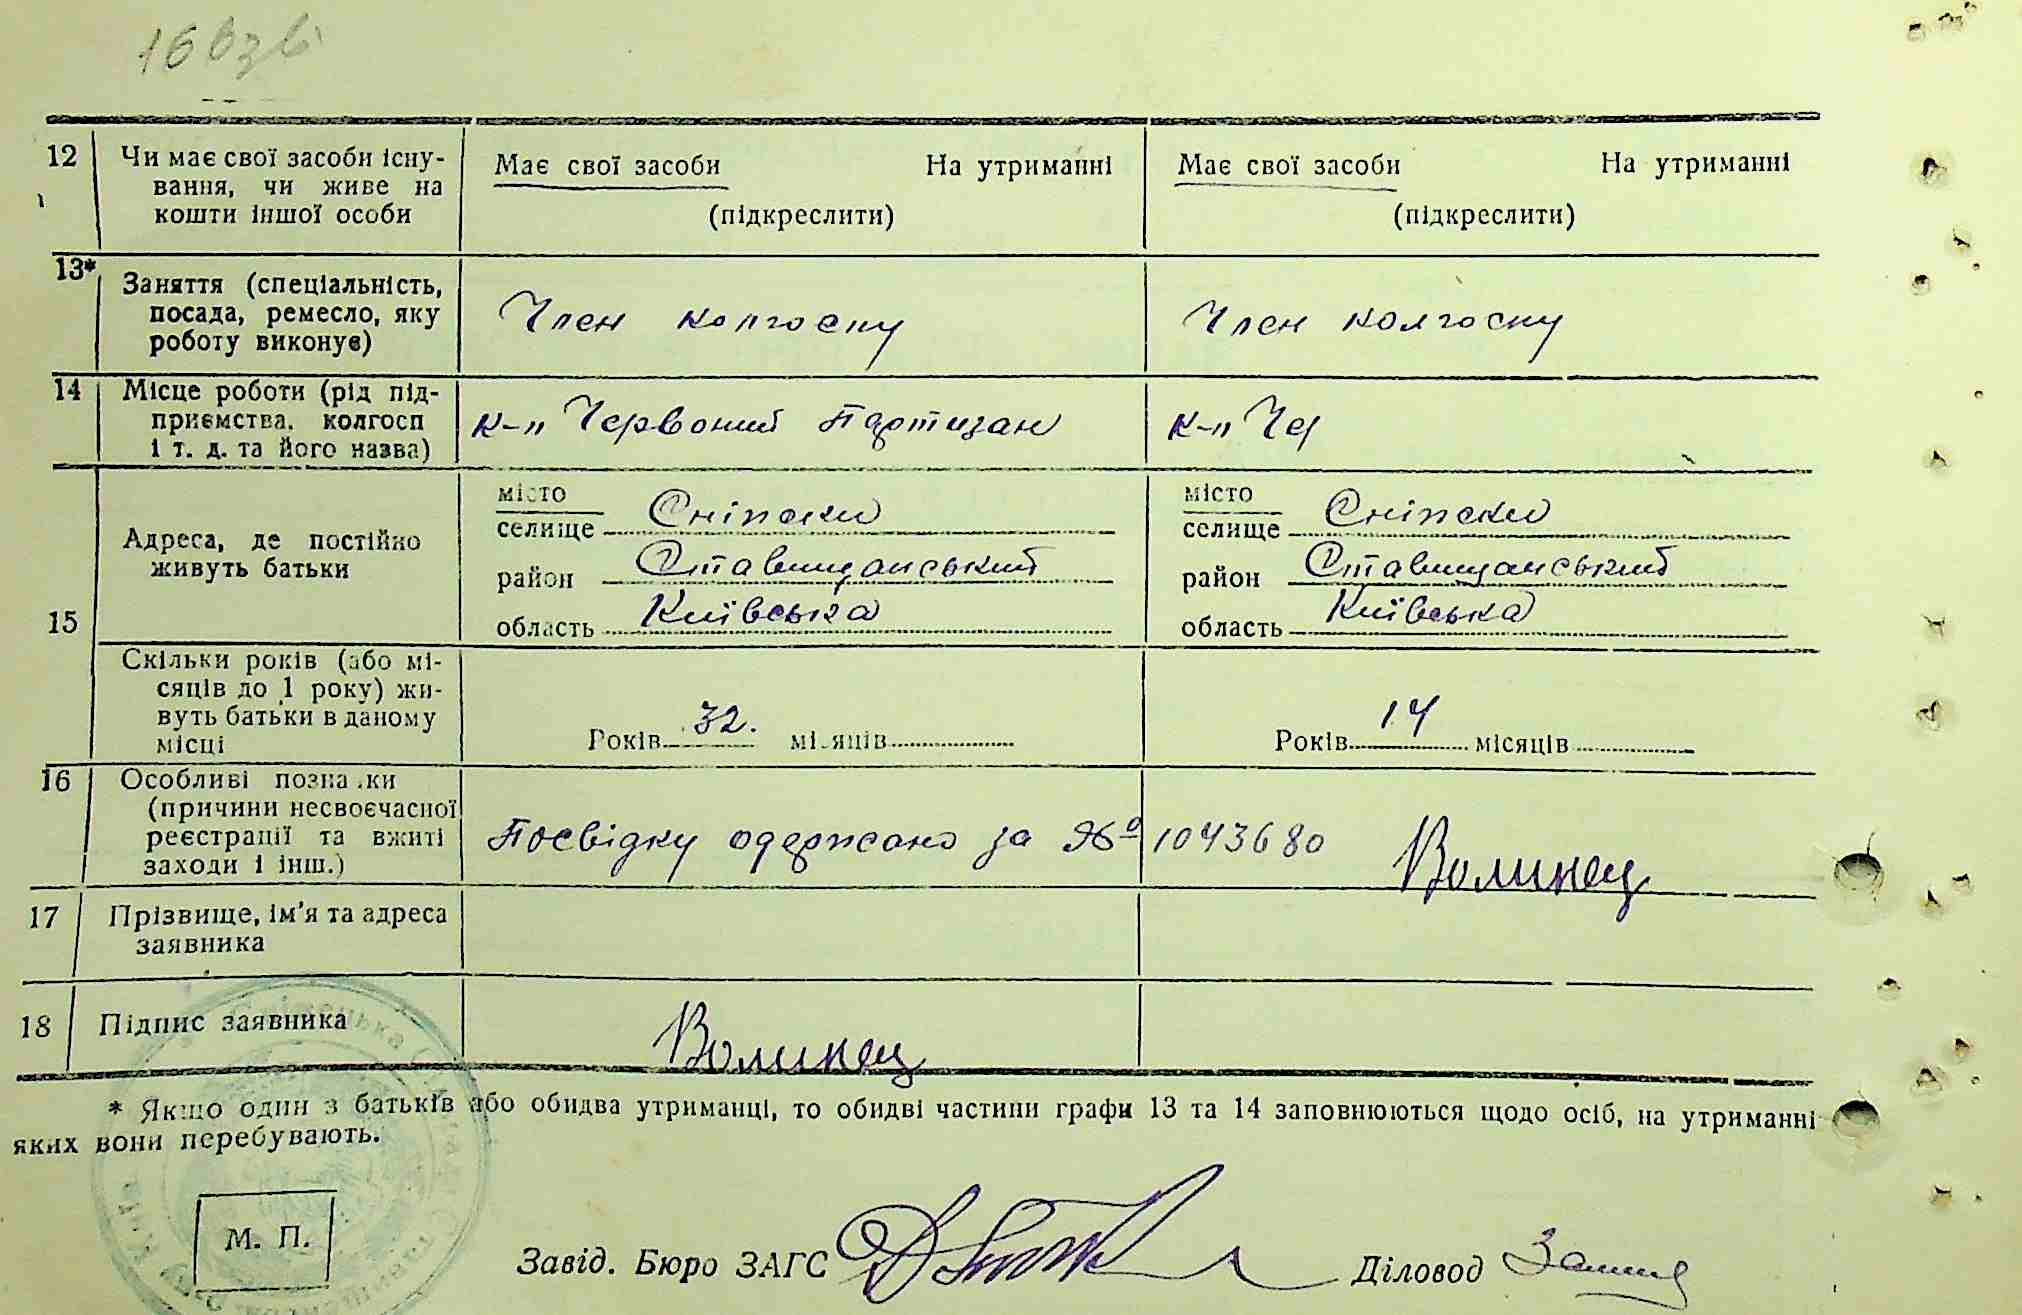 12 Чи має свої засоби існу-
вання, чи живе на
кошти іншої особи
Має свої засоби На утриманні
(підкреслити)
Має свої засоби На утриманні
(підкреслити)
13* Заняття (спеціальність,
посада, ремесло, яку
роботу виконує)
Член колгоспу
Член колгоспу
14 Місце роботи (рід під-
приємства, колгосп
і т. д. та його назва)
к-п Червоний Партизан
к-п Чер
15
Адреса, де постійно
живуть батьки
місто
селище Сніжки
район Ставищанський
область Київська
місто
селище Сніжки
район Ставищанський
область Київська
Скільки років (або мі-
сяців до 1 року) жи-
вуть батьки в даному
місці
Років 32. місяців
Років 14 місяців
16 Особливі познаки
(причини несвоєчасної
реєстрації та вжиті
заходи і інш.)
Посвідку одержано за № 1043680 Волинец
17 Прізвище, ім'я та адреса
заявника
18 Підпис заявника
Волинец
* Якщо один з батьків або обидва утриманці, то обидві частини графи 13 та 14 заповнюються щодо осіб, на утриманні
яких вони перебувають.
М. П.
Завід. Бюро ЗАГС
Діловод